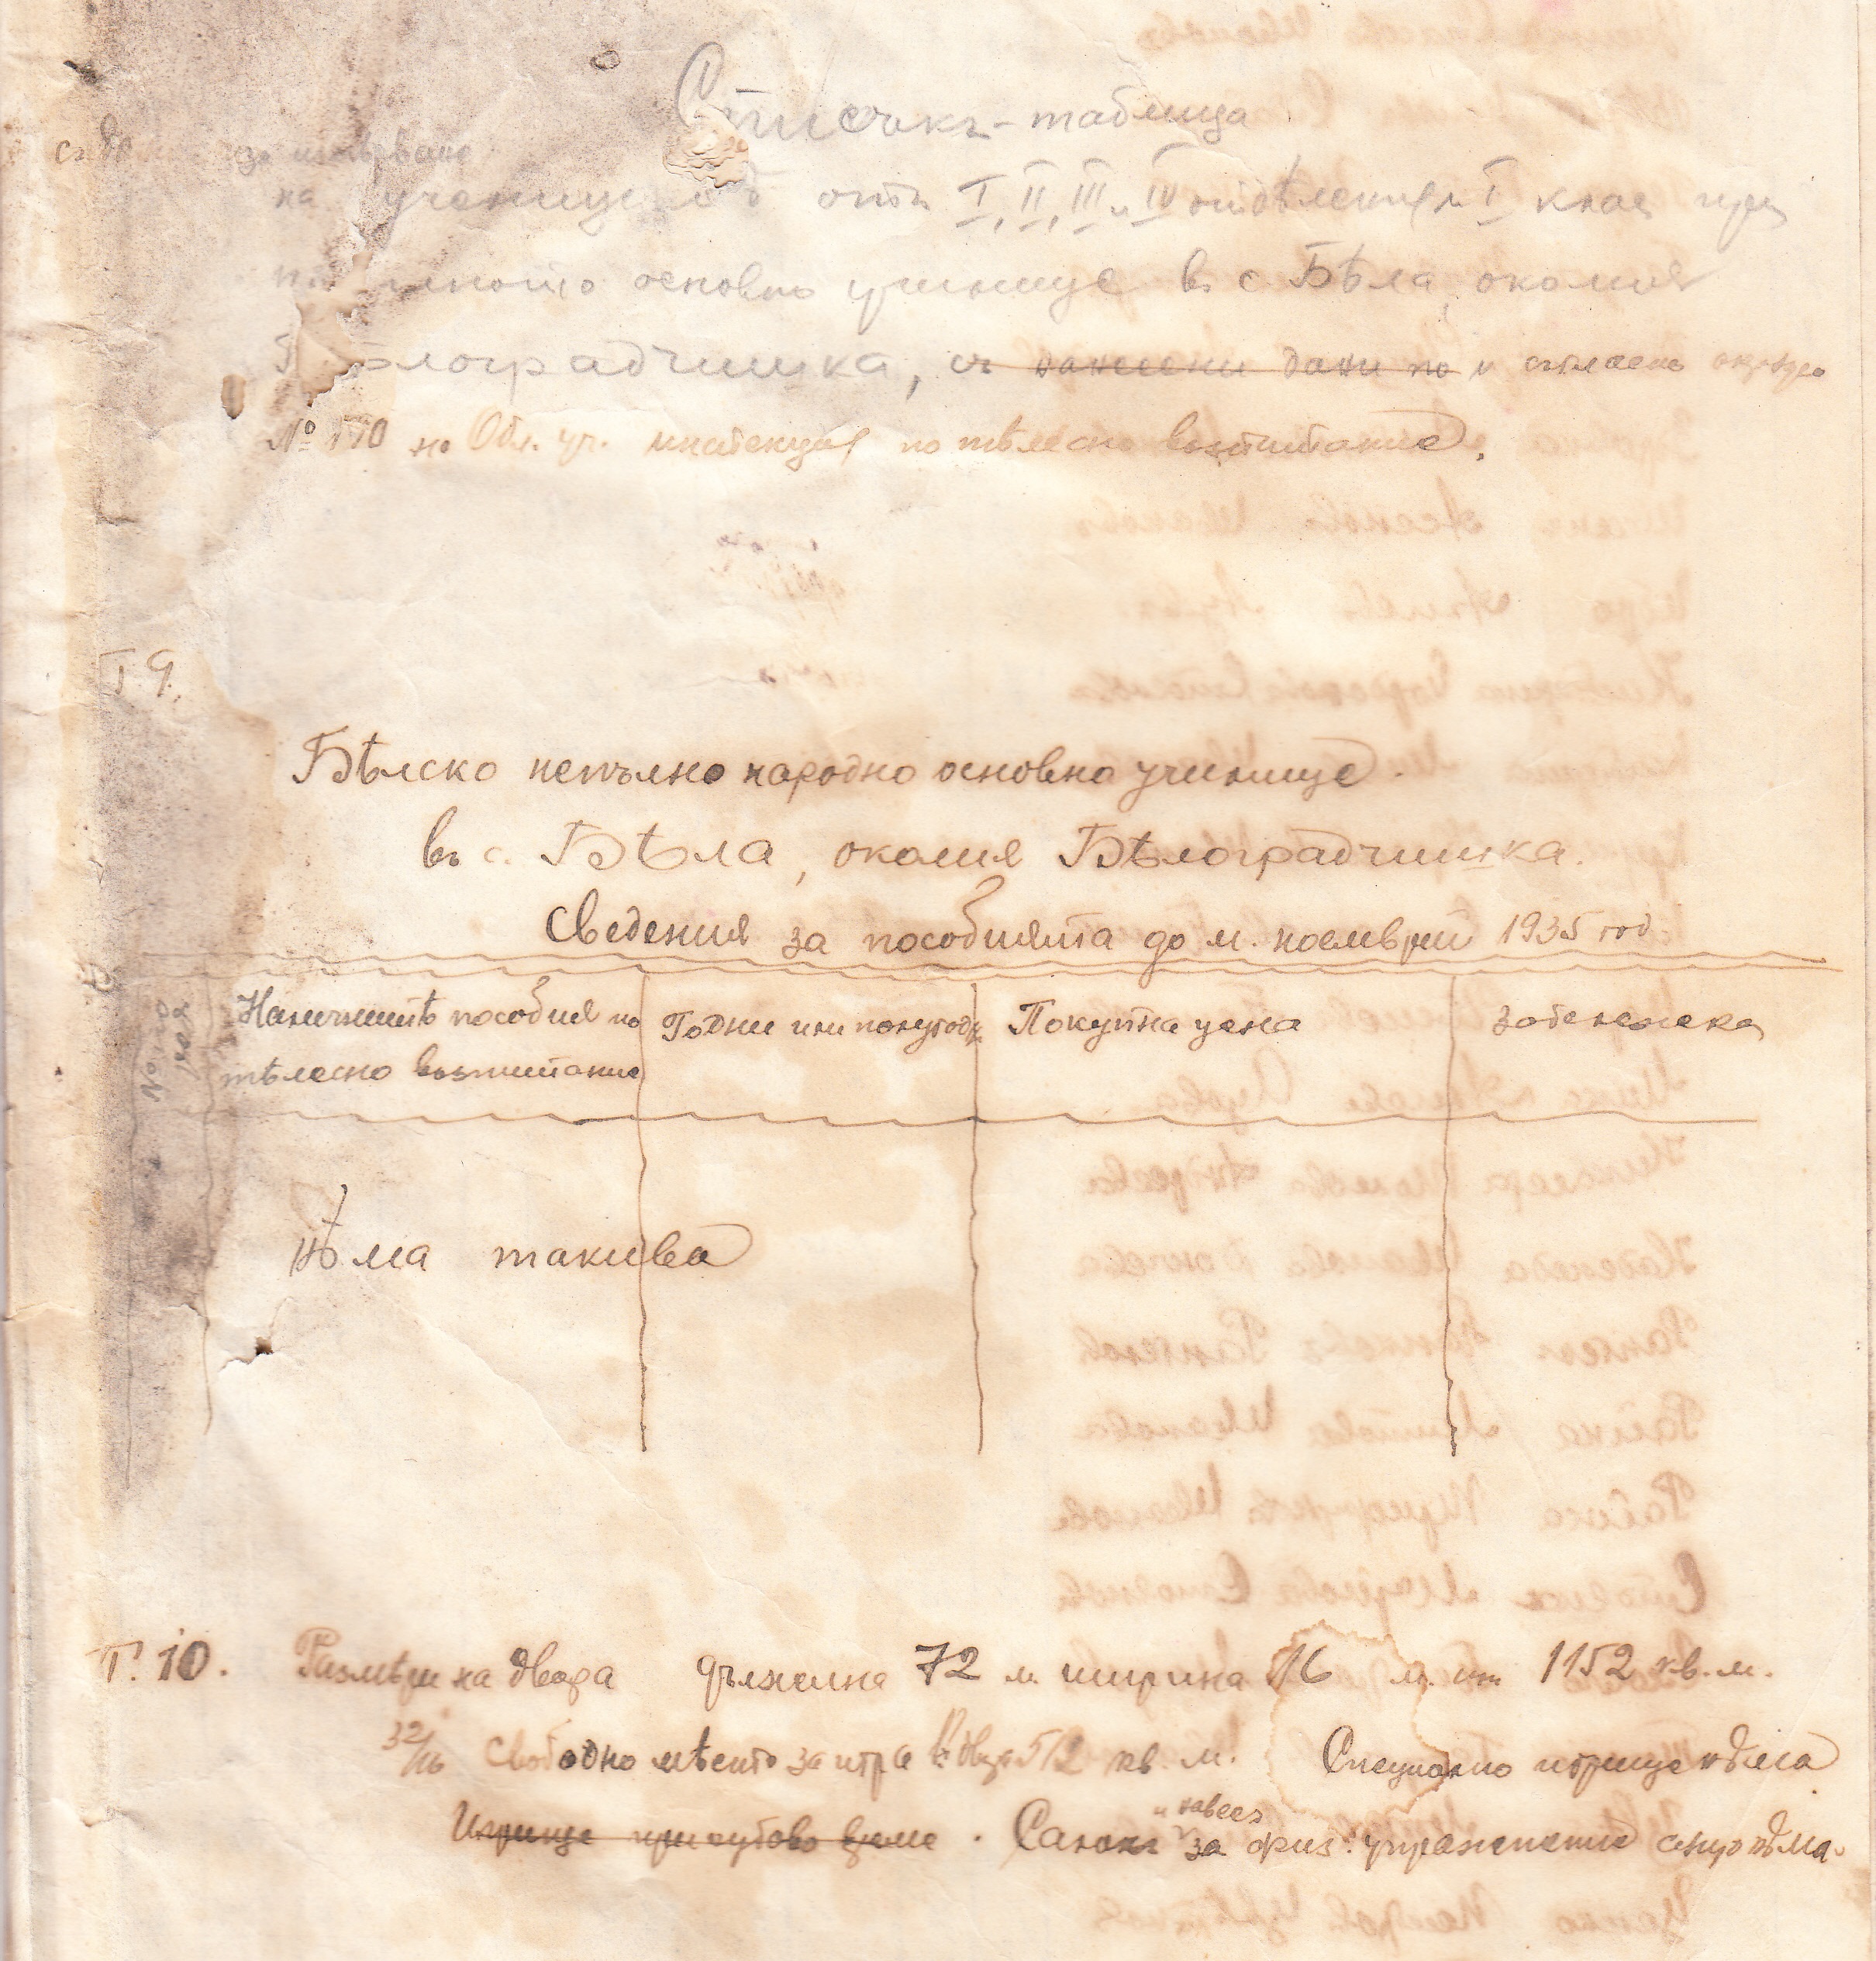 Списъкъ-таблица
на учениците отъ I, II, III и IV отдѣления и I класъ при
основно училище в с. Бѣла, околия
Бѣлоградчишка, съ нанесени дани по и съгласно окръжно
№ 170 на Обл. уч. инспекция по тѣлесно възпитание.
Т 9.
Бѣлско непълно народно основно училище.
въ с. Бѣла, околия Бѣлоградчишка.
Сведения за пособията до м. ноемврий 1935 год.
№ по редъ
Наличнитѣ пособия по тѣлесно възпитание
Годни или полугодни
Покупна цена
забележка
нѣма такива
Т. 10. Размѣри на двора дължина 72 м. ширина 16 м. или 1152 кв. м.
32/16 Свободно мѣсто за игра въ двора 512 кв. м. Специално игрище нѣма
Игрище при лутово време. Салонъ и навесъ за физ. упражнения също нѣма.